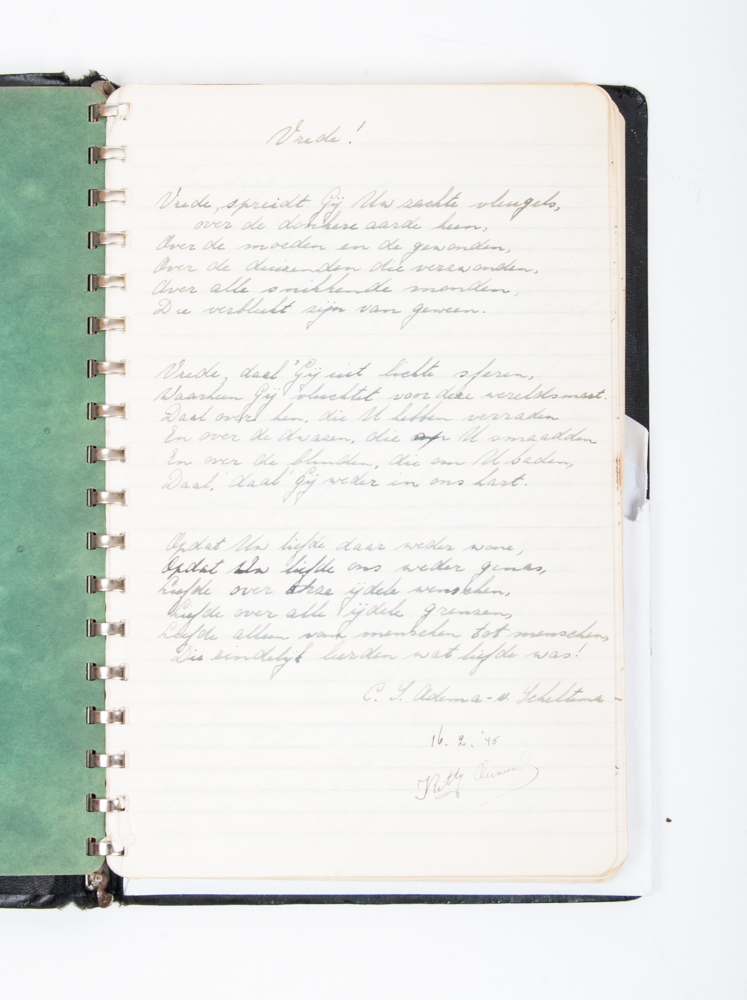 Vrede!
Vrede, spreidt Gij Uw zachte vleugels,
over de donkere aarde heen,
Over de moeden en de gewonden,
Over de duizenden die verzwonden,
Over alle snikkende monden,
Die verbleekt zijn van geween.
Vrede, daal Gij uit lichte sferen,
Waarheen Gij vluchtet voor deze wereldsmart.
Daal over hen, die U hebben verraden
En over de dwazen, die U smaadden
En over de blinden, die om U baden,
Daal, daal Gij weder in ons hart.
Opdat Uw liefde daar weder wone,
Opdat Uw liefde ons weder genas,
Liefde over onze ijdele wenschen,
Liefde over alle ijdele grenzen,
Liefde alleen van menschen tot menschen,
Die eindelijk leerden wat liefde was!
C. S. Adema - v. Scheltema -
16. 2. '45
Kitty